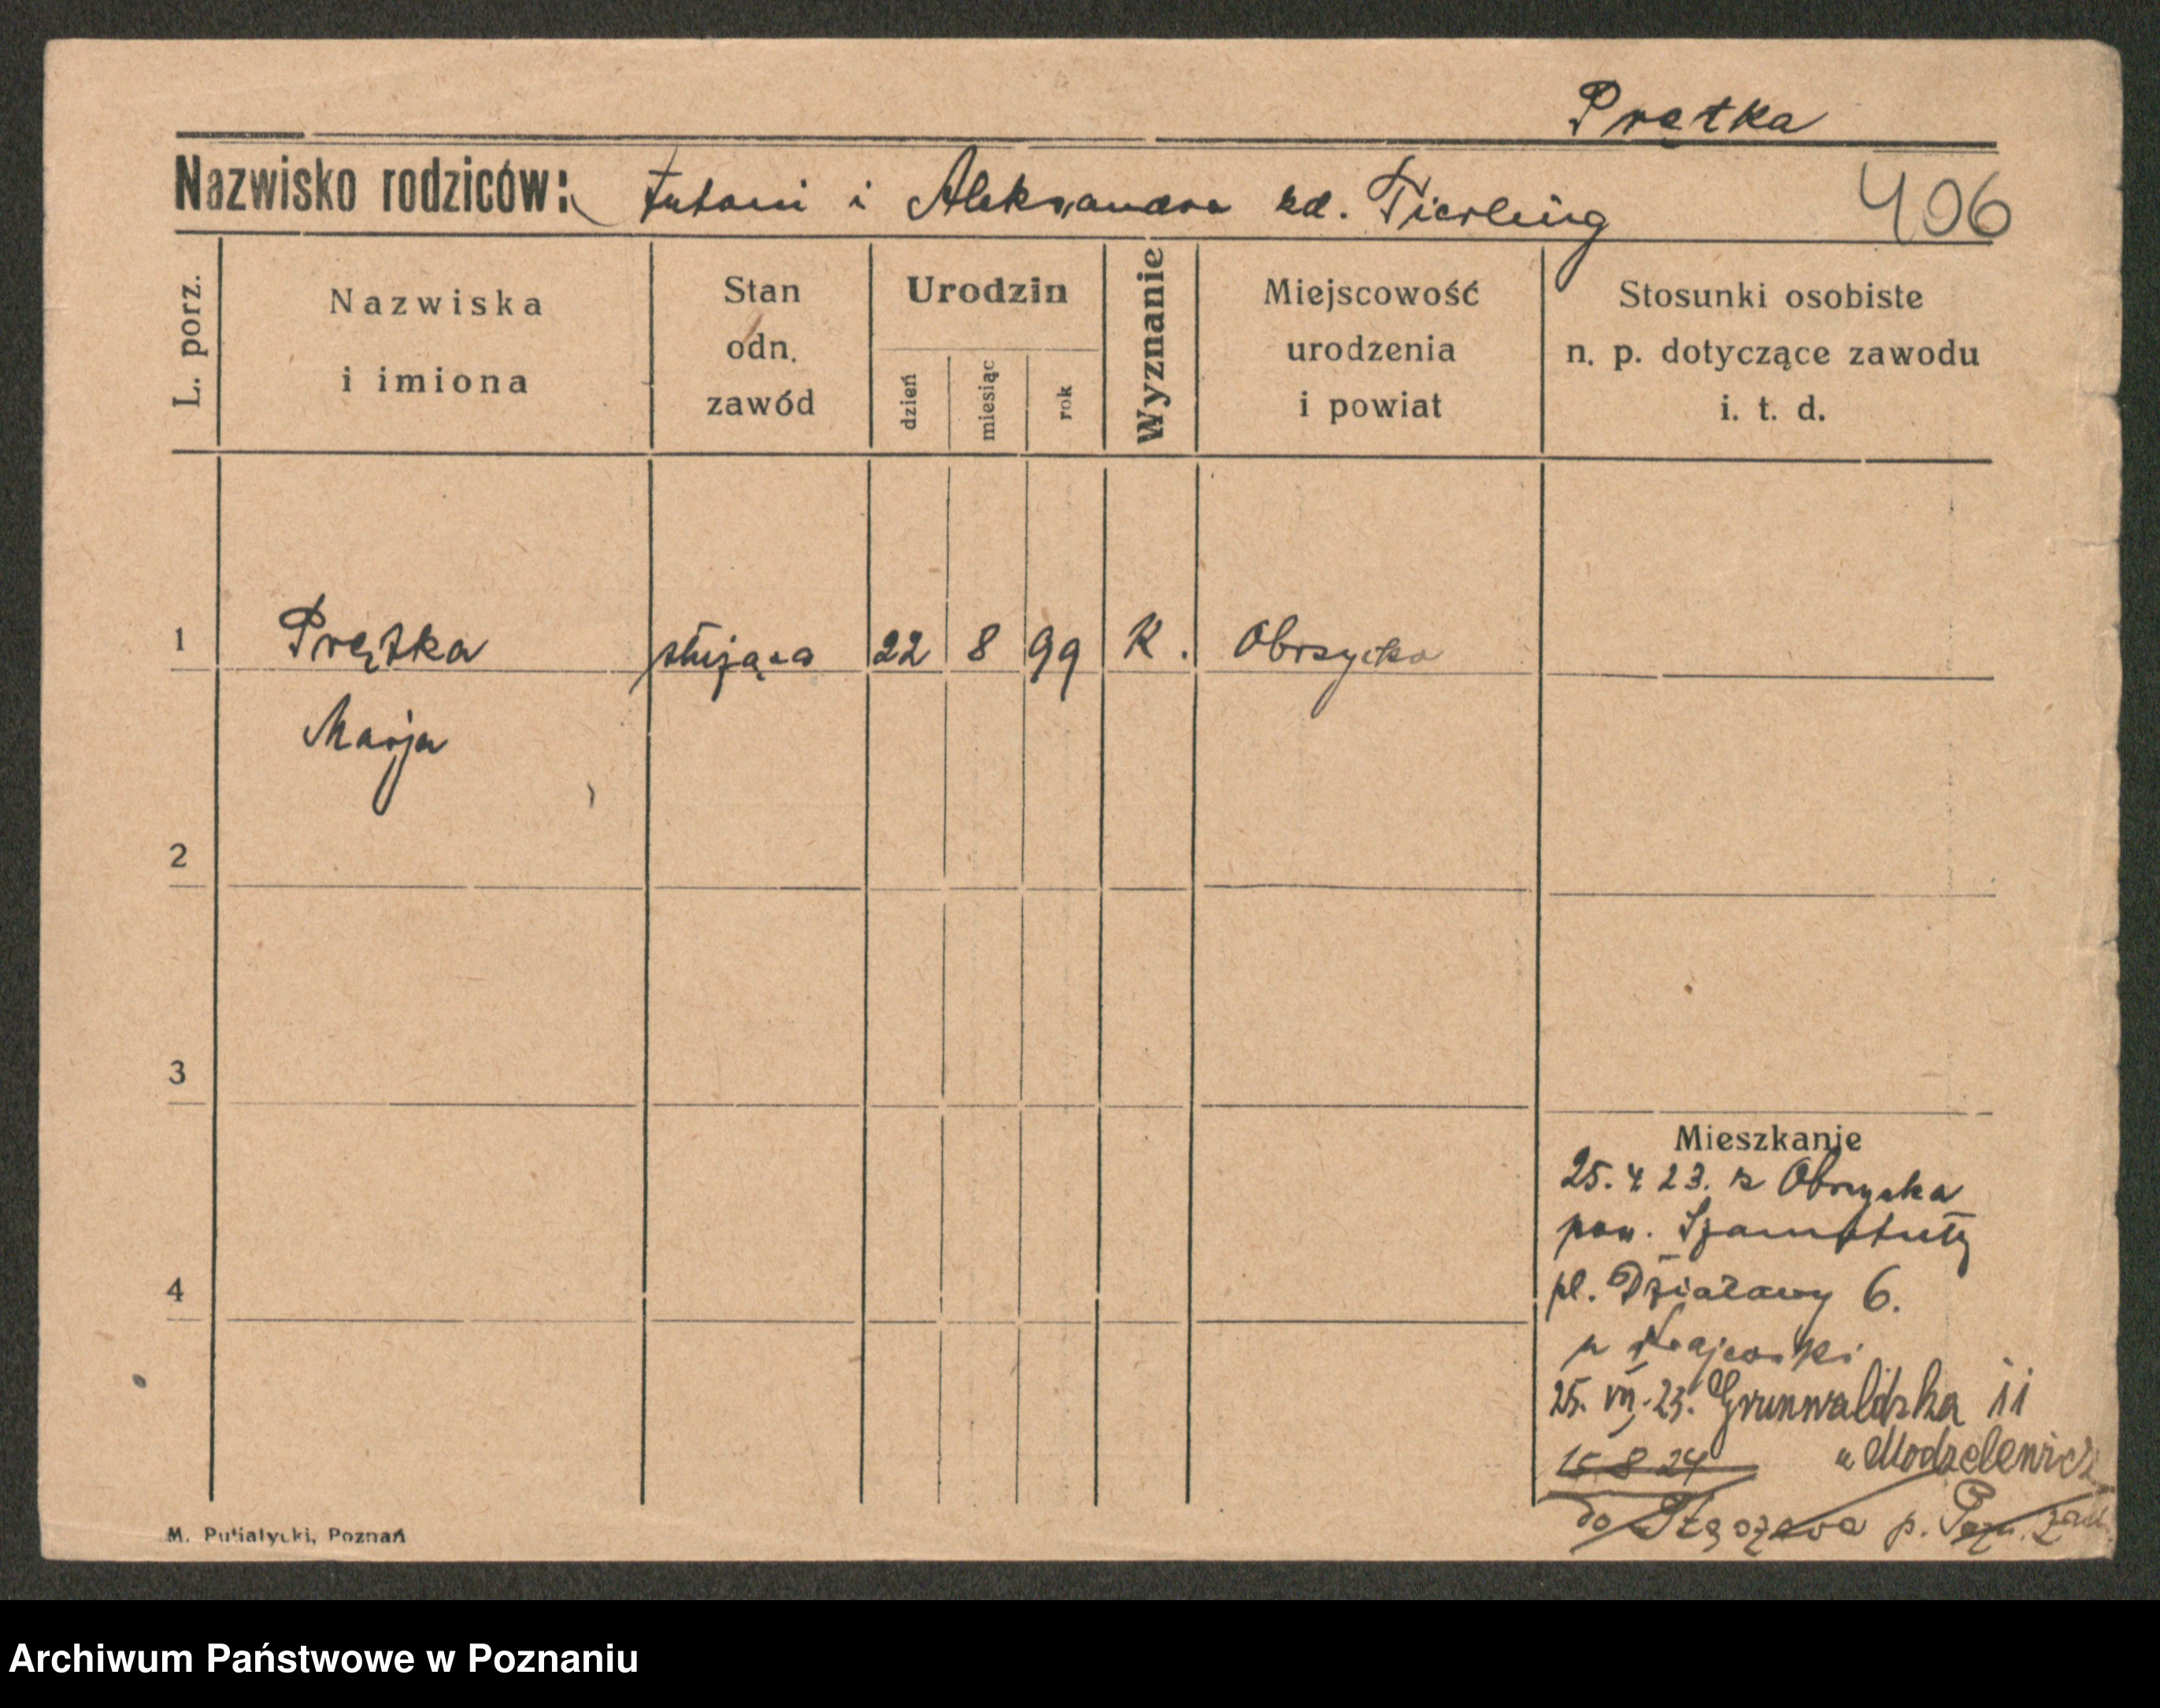 Prętka
Nazwisko rodziców: Antoni i Aleksandra zd. Tierling
406
L. porz.
Nazwiska
i imiona
Stan
odn.
zawód
Urodzin
dzień
miesiąc
rok
Wyznanie
Miejscowość
urodzenia
i powiat
Stosunki osobiste
n. p. dotyczące zawodu
i. t. d.
1 Prętka służąca 22 8 99 K. Obrzycko
Marja
2
3
4
Mieszkanie
25. 4 23. z Obrzycka
pow. Szamotuły
pl. Działowy 6.
u Krajewski
25. VII. 23. Grunwaldzka 11
u Modzelewicz
15 8 24
do p. Pozn. zach
M. Putiatycki, Poznań
Archiwum Państwowe w Poznaniu